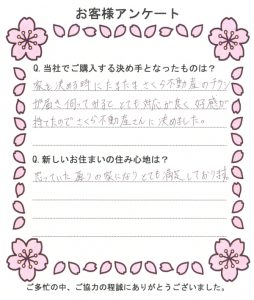 お客様アンケート
Q.当社でご購入する決め手となったものは?
家を決める時にたまたまさくら不動産のチラシ
が届き伺ってみるととても対応が良く好感が
持てたのでさくら不動産さんに決めました。
Q.新しいお住まいの住み心地は?
思っていた通りの家になりとても満足しております
ご多忙の中、ご協力の程誠にありがとうございました。